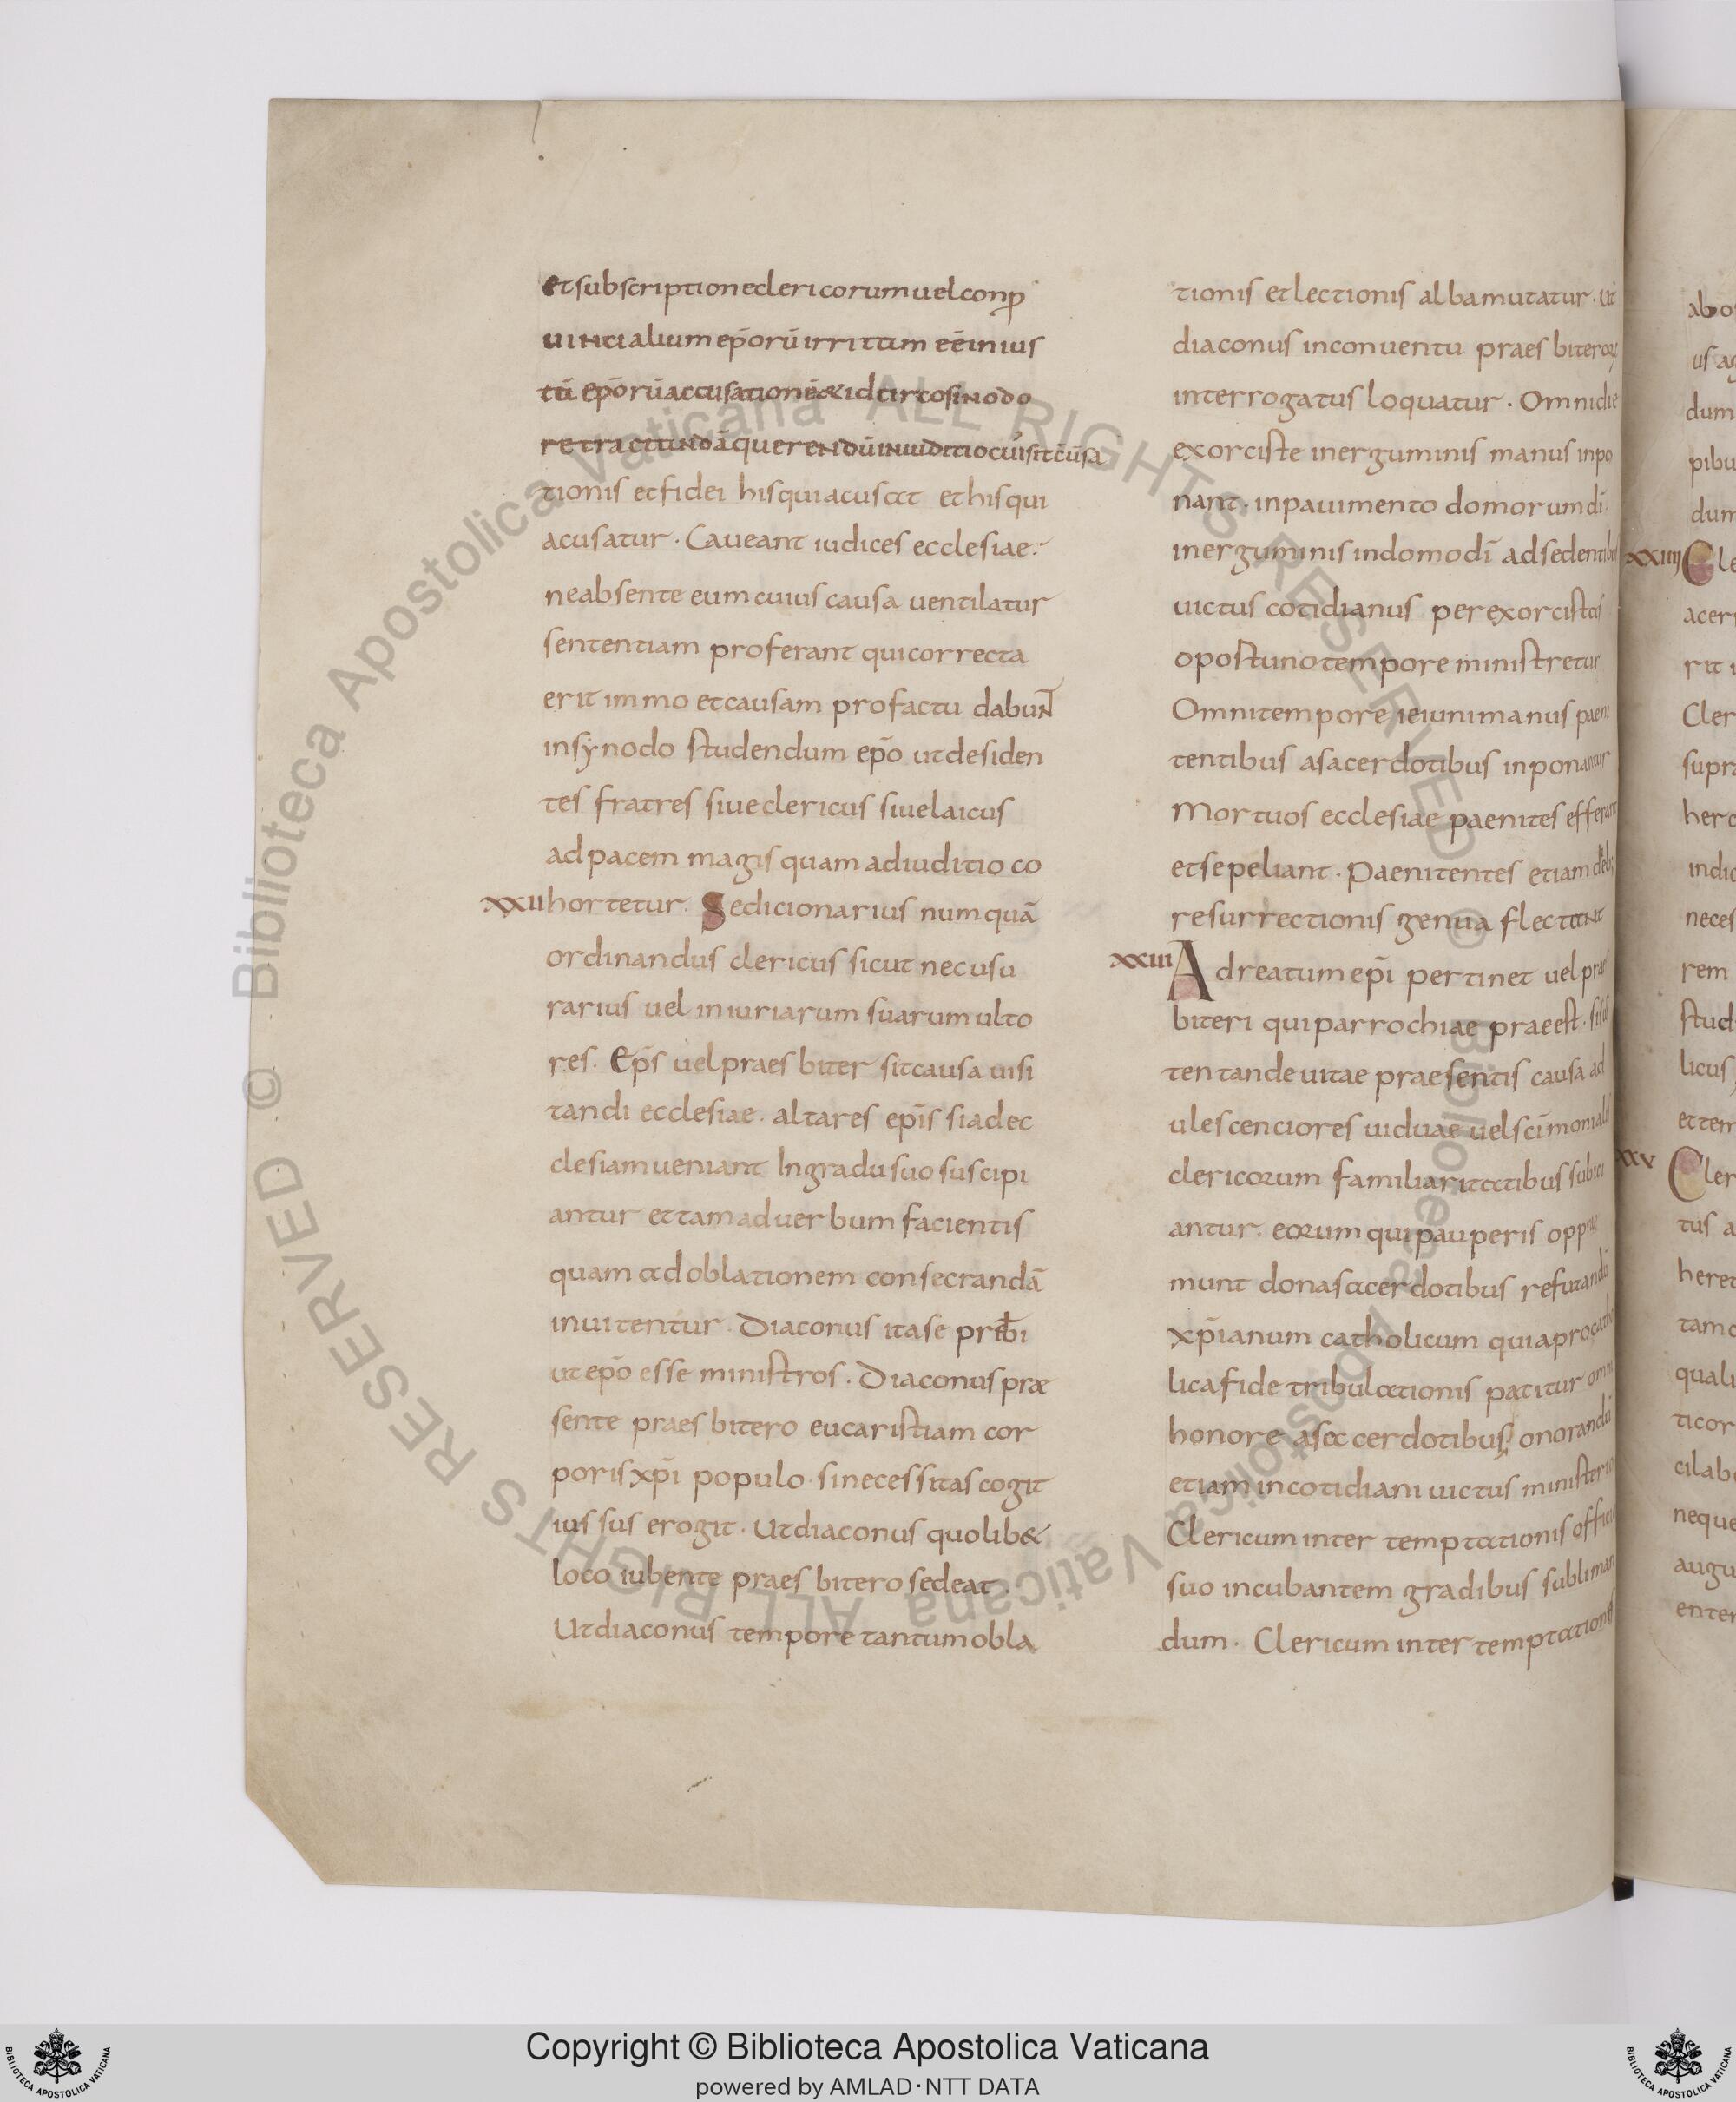 et subscriptione clericorum uel conp
uincialium ep̄orū irritum eē in ius
tū ep̄orū accusationē & idcirco sinodo
tionis et fidei his qui acusat et his qui
acusatur · Caueant iudices ecclesiae ·
ne absente eum cuius causa uentilatur
sententiam proferant qui correcta
erit immo et causam pro factu dabuNT
in sẏnodo studendum ep̄o ut desiden
tes fratres siue clericus siue laicus
ad pacem magis quam ad iuditio co
xxii hortetur. Sedicionarius numquā
ordinandus clericus sicut nec usu
rarius uel iniuriarum suarum ulto
res. Ep̄s uel praesbiter sit causa uisi
tandi ecclesiae. altares ep̄is si ad ec
clesiam ueniant In gradu suo suscipi
antur et tam ad uerbum facientis
quam ad oblationem consecrandā
inuitentur. Diaconus ita se prīb̄i
ut ep̄o esse ministros. Diaconus præ
sente praesbitero eucaristiam cor
poris xp̄i populo · si necessitas cogit
iussus erogit. Ut diaconus quolib&
loco iubente praesbitero sedeat.
Ut diaconus tempore tantum obla
tionis et lectionis alba mutatur. Ut
diaconus in conuentu praesbiterorꝝ
interrogatus loquatur. Omni die
exorciste inerguminis manus inpo
nant. in pauimento domorum dī
inerguminis in domo dī adsedentibus
uictus cotidianus per exorcistas
opostuno tempore ministretur
Omni tempore ieiuni manus paeni
tentibus a sacerdotibus inponantur
Mortuos ecclesiae paenites efferant
et sepeliant. Paenitentes etiam diebs
resurrectionis genua flectaNT
xxiii Ad reatum ep̄i pertinet uel prae
biteri qui parrochiae praeest.
tentande uitae praesentis causa ad
ulescenciores uiduae uel sc̄imoniales
clericorum familiaritatibus subici
antur. eorum qui pauperis
munt dona sacerdotibus refutandū
xp̄ianum catholicum quia pro catho
lica fide tribulationis patitur omni
honore a sacerdotibus onorandū
etiam in cotidiani uictus ministerio
Clericum inter temptationis officio
suo incubantem gradibus subliman
dum. Clericum inter temptationes
xxiiii Cle
Cler
supra
indic
neces
rem
stud
licus
et tem
xxv Cler
tus a
heret
quali
ticor
neque
augu